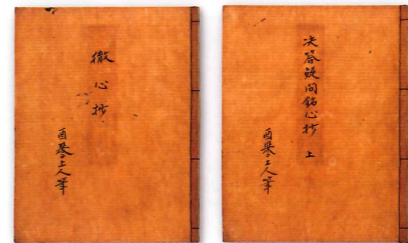 决答疑問銘心抄 上
酉誉上人筆
徹心抄
酉誉上人筆